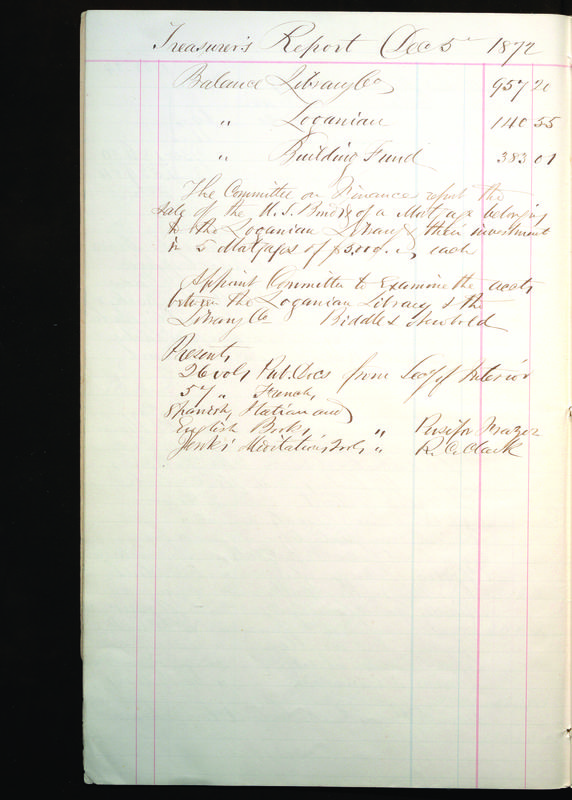 Treasurer's Report Dec 5" 1872
Balance Library Co 957 20
" Loganian 140 55
" Building Fund 383 01
The Committee on Finance report the
sale of the U.S. Bonds of a Mortgage belonging
to the Loganian Library & their investment
in 5 Mortgages of $5,000. each
Appoint Committee to Examine the accts,
between the Loganian Library & the
Library Co Biddle & Newbold
Present,
26 vols, Pub. Docs from Secy of Interior
57 " French,
Spanish, Italian and
English Books, " Frazer
Jenks' Meditations " R. C. Clark